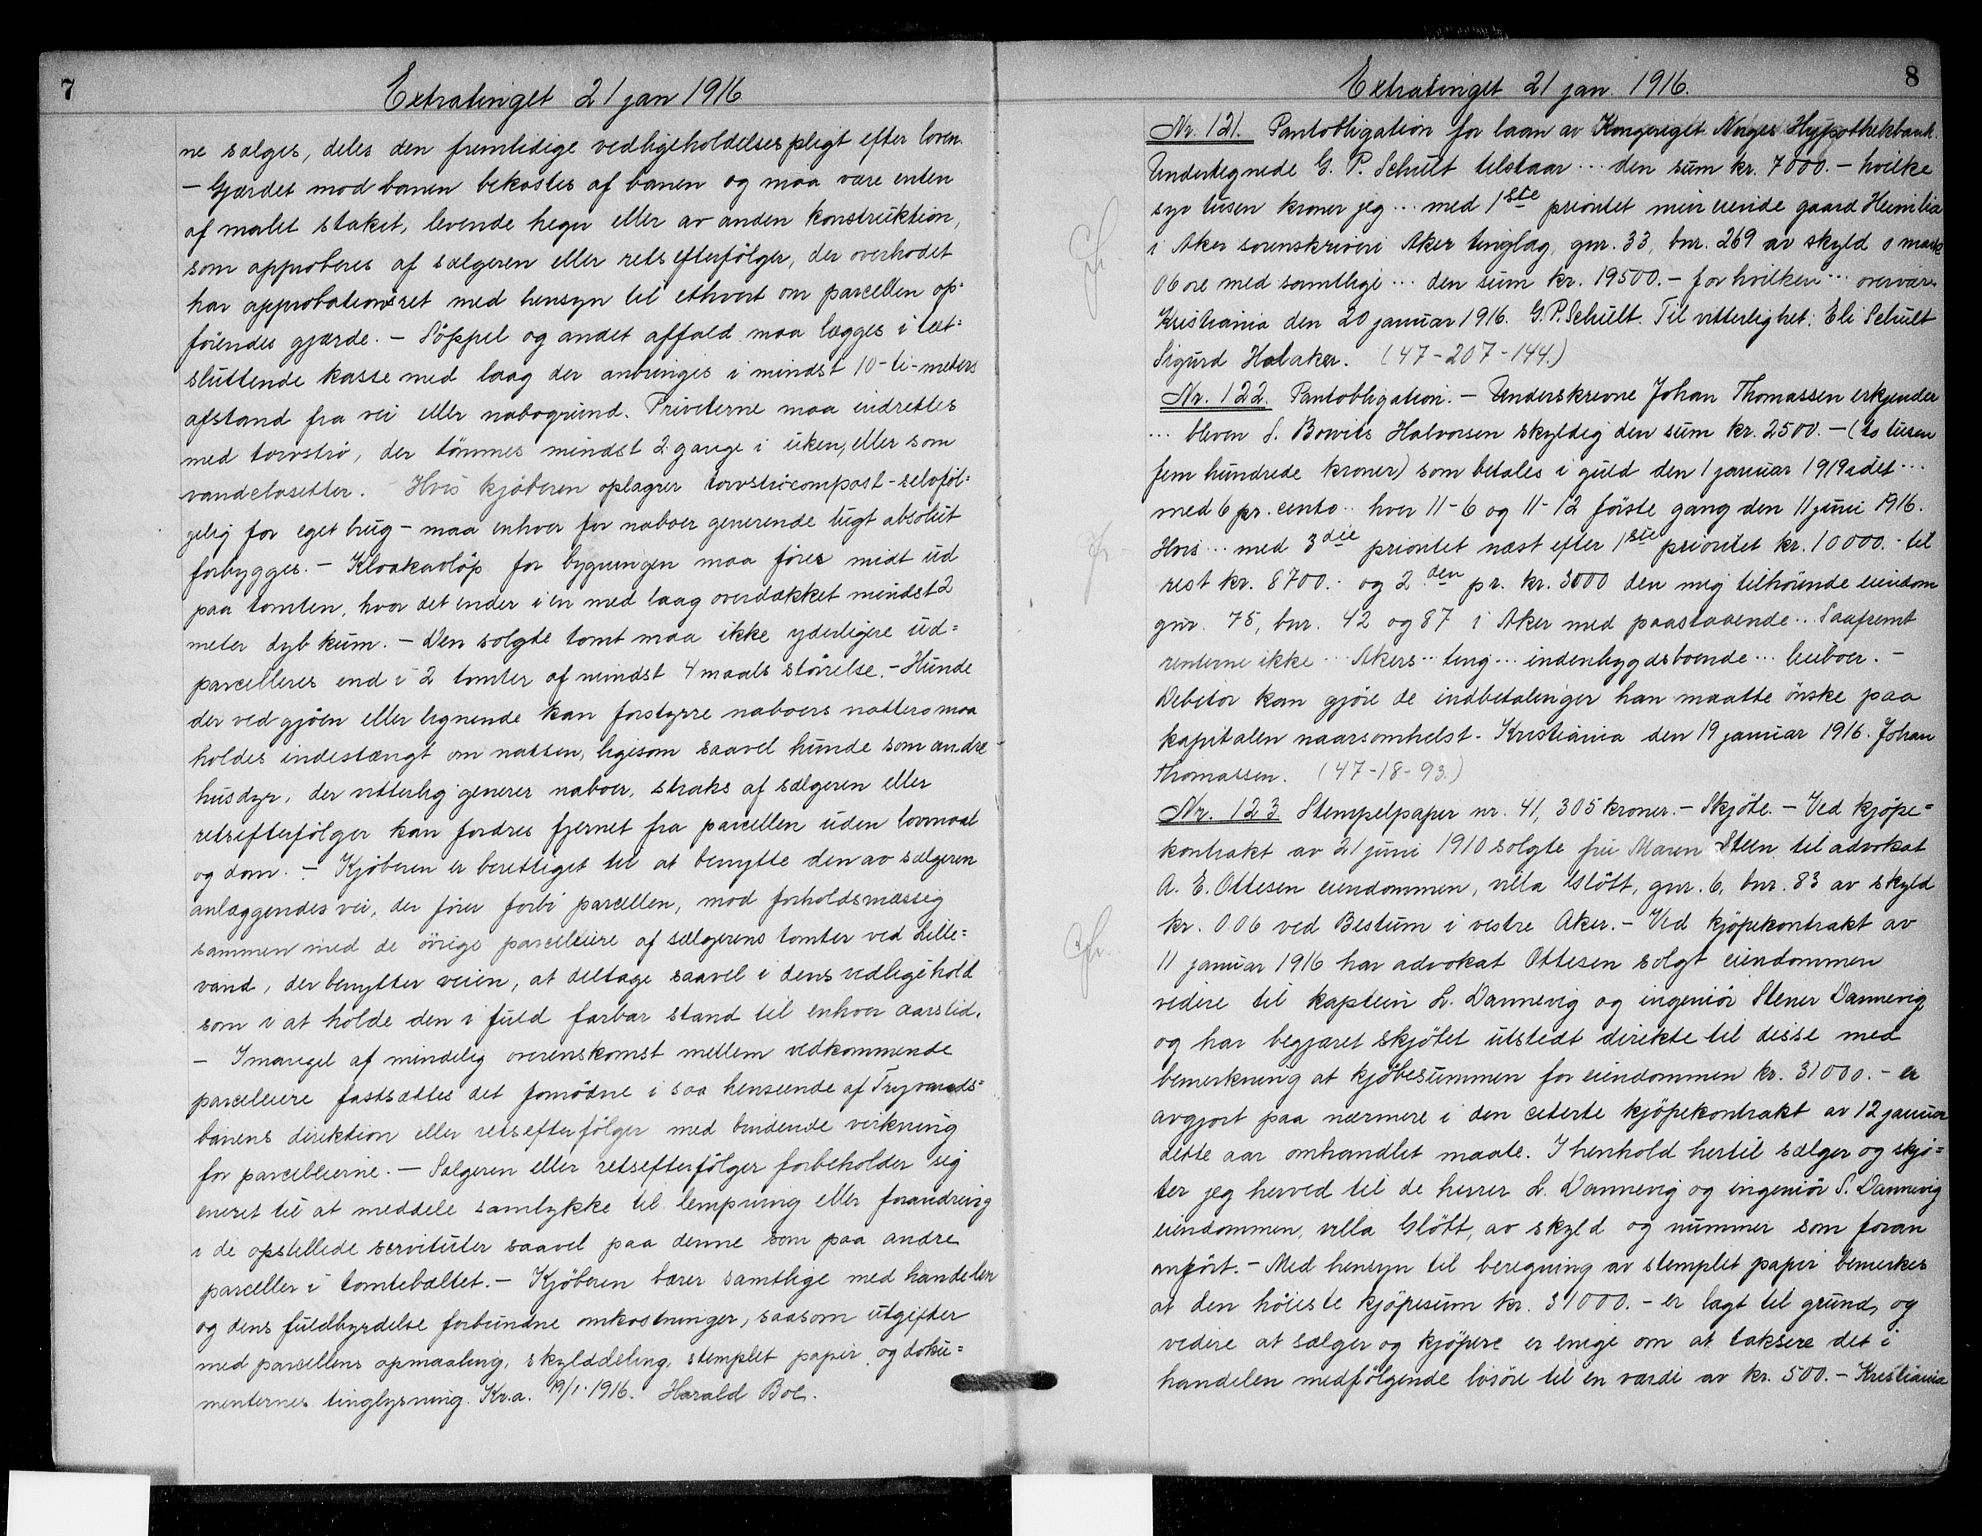 7
Extratinget 21 jan 1916
ne sælges, deles den fremtidige vedligeholdelsespligt efter loven.
– Gjærdet mod banen bekostes af banen og maa være enten
af malet staket, levende hegn eller av anden konstruktion,
som approberes af sælgeren eller retsefterfølger, der overhodet
har approbationsret med hensyn til ethvert om parcellen op-
føiendes gjærde. – Søppel og andet affald maa lægges i tæt-
sluttende kasse med laag der anbringes i mindst 10-ti-meters
afstand fra vei eller nabogrund. Priveterne maa indrettes
med torvstrø, der tømmes mindst 2 gange i uken, eller som
vandclosetter. Hvis kjøberen oplagrer torvstrøcompost - selvføl-
gelig for eget brug – maa enhver for naboer generende lugt absolut
forbygges. – Kloakavløp for bygningen maa føres midt ud
paa tomten, hvor det ender i en med laag overdækket mindst 2
meter dyb kum. – Den solgte tomt maa ikke yderligere ud-
parcelleres end i 2 tomter af mindst 4 maals størrelse. – Hunde
der ved gjøen eller lignende kan forstyrre naboers nattero maa
holdes indestængt om natten, ligesom saavel hunde som andre
husdyr, der vitterlig generer naboer, straks af sælgeren eller
retsefterfølger kan fordres fjernet fra parcellen uden lovmaal
og dom. – Kjøberen er berettiget til at benytte den av sælgeren
anlæggendes vei, der fører forbi parcellen, mod forholdsmæssig
sammen med de øvrige parceleiere af sælgerens tomter ved Lille-
vand, der benytter veien, at deltage saavel i dens vedligehold
som i at holde den i fuld farbar stand til enhver aarstid.
– I mangel af mindelig overenskomst mellem vedkommende
parceleiere fastsættes det fornødne i saa henseende af Tryvands-
banens direktion eller retsefterfølger med bindende virkning
for parceleierne. – Sælgeren eller retsefterfølger forbeholder sig
eneret til at meddele samtykke til lempning eller forandring
i de opstillede servituter saavel paa denne som paa andre
parceller i tomtebæltet. – Kjøberen bærer samtlige med handelen
og dens fuldbyrdelse forbundne omkostninger, saasom utgifter
med parcellens opmaaling, skylddeling, stemplet papir og doku-
menternes tinglysning. Kr.a. 19/1 1916. Harald Boe.
8
Extratinget 21 jan. 1916.
Nr. 121. Pantobligation for laan av Kongeriget Norges Hypothekbank.
Undertegnede G. P. Schult tilstaar ... den sum kr. 7000.- hvilke
syv tusen kroner jeg ... med 1ste prioritet min eiende gaard Heimlia
i Aker sorenskriveri Aker tinglag, gnr. 33, bnr. 269 av skyld 0 mark
06 øre med samtlige ... den sum kr. 19500.- for hvilken ... overvær.
Kristiania den 20 januar 1916. G.P. Schult. Til vitterlighet: Eli Schult
Sigurd Holaker. (47-207-144.)
Nr. 122. Pantobligation. – Underskrevne Johan Thomassen erkjender
... bleven S. Bowits Halvorsen skyldig den sum kr. 2500.- (to tusen
fem hundrede kroner) som betales i guld den 1 januar 1919 idet ...
med 6 pr. cento .. hver 11-6 og 11-12 første gang den 11 juni 1916.
Hvis ... med 3die prioritet næst efter 1ste prioritet kr. 10000.- til
rest kr. 8700.- og 2den pr. kr. 3000 den mig tilhørende eiendom
gnr. 75, bnr. 42 og 87 i Aker med paastaaende ... Saafremt
renterne ikke ... Akers .. ting ... indenbygdsboende ... leieboer. –
Debitor kan gjøre de indbetalinger han maatte ønske paa
kapitalen naarsomhelst. Kristiania den 19 januar 1916. Johan
Thomassen. (47-18-93.)
Nr. 123 Stempelpaper nr. 41, 305 kroner. – Skjøte. – Ved kjøpe-
kontrakt av 21 juni 1910 solgte fru Maren Steen til advokat
A. E. Ottesen eiendommen, villa Gløtt, gnr. 6, bnr. 83 av skyld
kr. 0.06 ved Bestum i vestre Aker. – Ved kjøpekontrakt av
11 januar 1916 har advokat Ottesen solgt eiendommen
videre til kaptein L. Dannevig og ingeniør Stener Dannevig
og har begjæret skjøtet utstedt direkte til disse med
bemerkning at kjøbesummen for eiendommen kr. 31000.- er
avgjort paa nærmere i den citerte kjøpekontrakt av 12 januar
dette aar omhandlet maate. I henhold hertil sælger og skjø-
ter jeg herved til de herrer L. Dannevig og ingeniør S. Dannevig
eiendommen, villa Gløtt, av skyld og nummer som foran
anført. – Med hensyn til beregning av stemplet papir bemerkes
at den høieste kjøpesum kr. 31000.- er lagt til grund, og
videre at sælger og kjøpere er enige om at taksere det i
handelen medfølgende løsøre til en værdi av kr. 500.- Kristiania